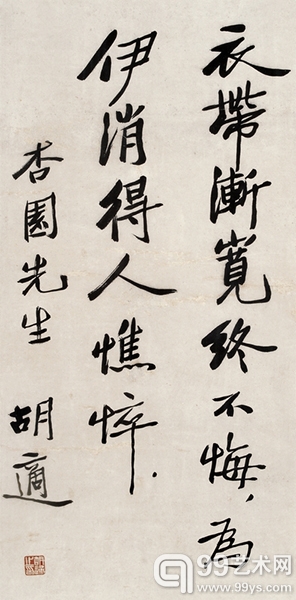 衣帶漸寬終不悔，為
伊消得人憔悴．
杏園先生
胡適
99艺术网
www.99ys.com